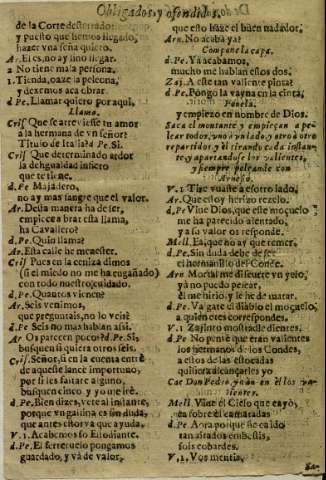 Obligados, y ofendidos.
de la Corte desterrado:
y puesto que hemos llegado,
hazer vna seña quiero.
Ar. El es, no ay sino llegar.
2 No tiene mala persona.
1. Tienda, oaze la pelecona,
y dexemos aca obrar.
d Pe. Llamar quiero por aqui,
Llama.
Cris Que se atreuiesse tu amor
a la hermana de vn señor?
Titulo de Italia? d Pe. Si.
Cris Que determinado ardor
la desigualdad infiero
que te tiene.
d. Pe Majadero,
no ay mas sangre que el valor.
Ar. Desta manera ha de ser,
empiecen a brar esta llama,
ha Cauallero?
d. Pe. Quien llama?
Ar. Esta calle he menester.
Cris Pues en la ceniza dimos
(si el miedo no me ha engañado)
con todo nuestro cuidado.
d Pe. Quantos vienen?
Ar. Seis venimos,
que preguntais, no lo veis?
d Pe Seis no mas habian assi.
Ar Os parecen pocos? d. Pe. Si,
busquen si quiera otros seis.
Cris. Señor, si en la cuenta entré
de aquesse lance importuno,
por si les faltare alguno,
busquen cinco y yo me iré.
d. Pe. Bien dizes, vete al instante,
porque vn gallina es sin duda,
que antes estorua que ayuda,
V. 1. Acabemos so Estudiante.
d. Pe. El ferreruelo pongamos
guardado, y va de valor,
que esto haze el buen nadador.
Ar. No acaba ya?
Compone la capa.
d. Pe. Ya acabamos,
mucho me hablan estos dos.
Zaj. A este tan valiente plota?
d. Pe. Pongo la vayna en la cinta,
Ponela.
y empiezo en nombre de Dios.
Saca el montante y empieçan a pe-
lear todos, vno a vn lado, y otro a otro
repartidos y èl tirando cada instan-
te, y apartandose los valientes,
y siempre peleando con
Arnesto.
V. 1 Tize vuaste a esotro lado,
Ar. Que estoy herido rezelo.
d. Pe Viue Dios, que este moçuelo
me ha parecido alentado,
y a su valor os responde.
Mell. Ea, que no ay que temer,
d. Pe. Sin duda debe de ser
el hermanillo del Conde.
Arn Mortal me discurre vn yelo,
ya no puedo pelear,
el me hirió, y le he de matar.
d. Pe. Va gate el diablo el moçuelo,
a quien eres correspondes.
V. 1 Zajluto mostradle dientes.
d. Pe No pensè que eran valientes
los hermanos de los Condes,
a estos de las estocadas
quisiera alcançarles yo
Cae Don Pedro, y dan en él los va-
lientes.
Mell. Viue el Cielo que cayó,
ea sobre el camaradas
d. Pe. Aora porque he caido
tan airados embestis,
sois cobardes.
V. 1. Vos mentis,